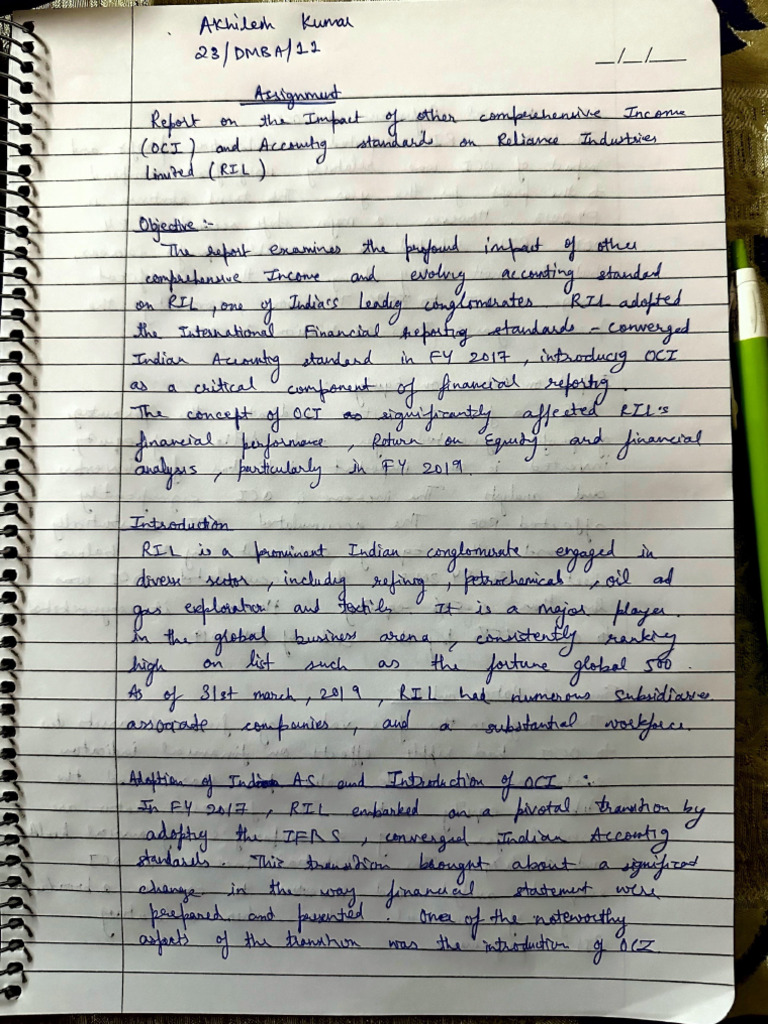 Akhilesh Kumar
23/DMBA/11
_/_/_
Assignment
Report on the Impact of other comprehensive Income
(OCI) and Accountig standards on Reliance Industries
Limited (RIL)
Objective :-
The report examines the profound impact of other
comprehensive Income and evolvig accounting standard
on RIL, one of India's Leadig conglomerates. RIL adopted
the International Financial Reportig standards - converged
Indian Accountig standard in FY 2017, introducig OCI
as a critical component of financial reportig.
The concept of OCI as significantly affected RIL's
financial performance, Return on Equity and financial
analysis, particularly in FY 2019.
Introduction
RIL is a prominent Indian conglomerate engaged in
diverse sector, includig refinig, petrochemical, oil ad
gas exploration and textile. It is a major player
in the global business arena, consistently rankig
high on list such as the fortune global 500.
As of 31st march, 2019, RIL had numerous subsidiaries
associate companies, and a substantial workforce.
Adoption of Indian AS and Introduction of OCI :
In FY 2017, RIL embarked on a pivotal transition by
adoptig the IFRS, converged Indian Accountig
standards. This transition brought about a significat
change in the way financial statement were
prepared and presented. One of the noteworthy
aspects of the transition was the introduction of OCI